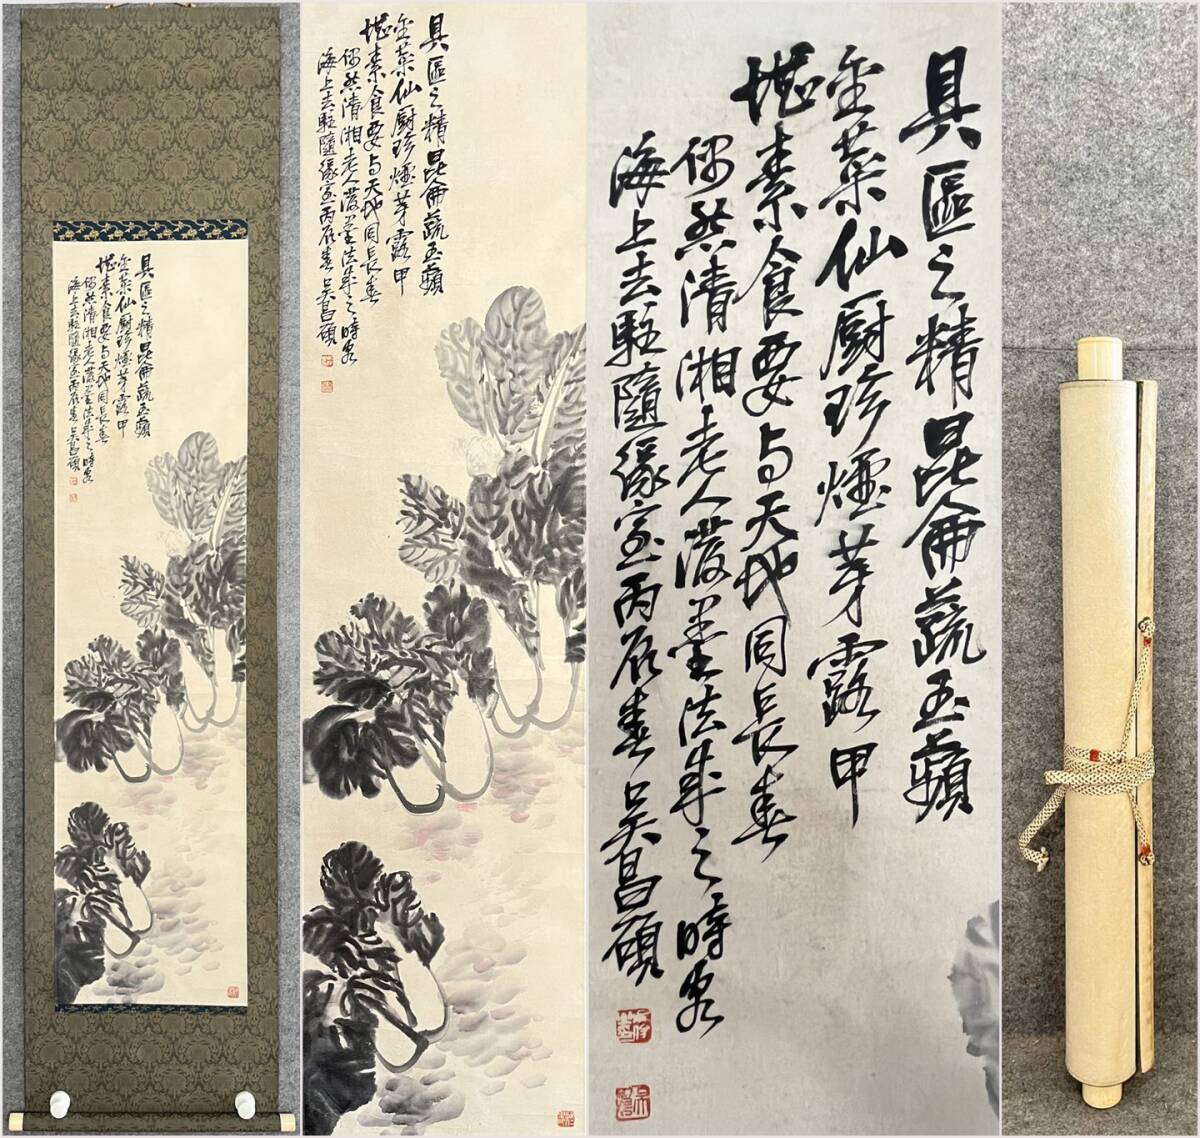 具區之精昆侖蔬玉蘋
金菜仙厨珍煙芽露甲
堪素食要与天地同長春
偶然清湘老人潑墨法成之時客
海上去駐隨緣室丙辰春 吳昌碩
具區之精昆侖蔬玉蘋
金菜仙厨珍煙芽露甲
堪素食要与天地同長春
偶然清湘老人潑墨法成之時客
海上去駐隨緣室丙辰春 吳昌碩
具區之精昆侖蔬玉蘋
金菜仙厨珍煙芽露甲
堪素食要与天地同長春
偶然清湘老人潑墨法成之時客
海上去駐隨緣室丙辰春 吳昌碩